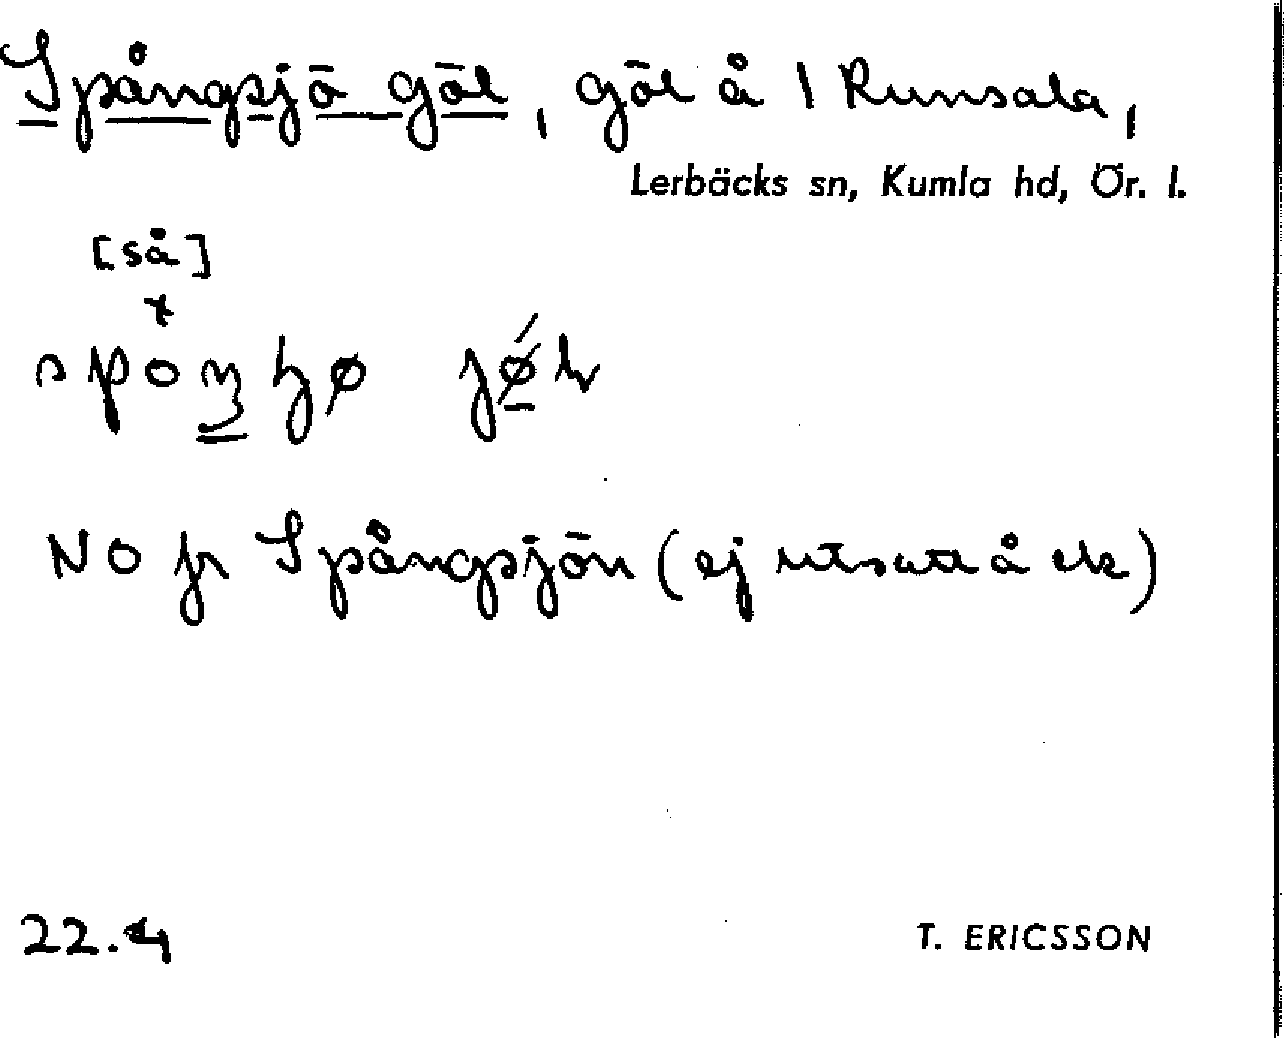 Spångsjö göl, göl å 1 Runsala,
Lerbäcks sn, Kumla hd, Ör. l.
[så]
x
NO fr Spångsjön (ej utsatt å ek)
22.4
T. ERICSSON